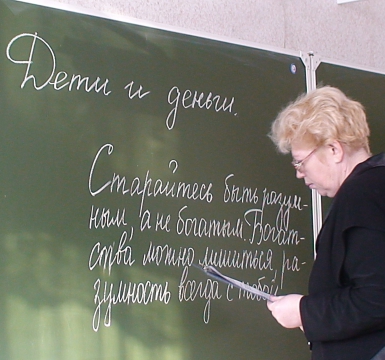 Дети и деньги.
Старайтесь быть разум-
ным, а не богатым. Богат-
ства можно лишиться, ра-
зумность всегда с тобой!